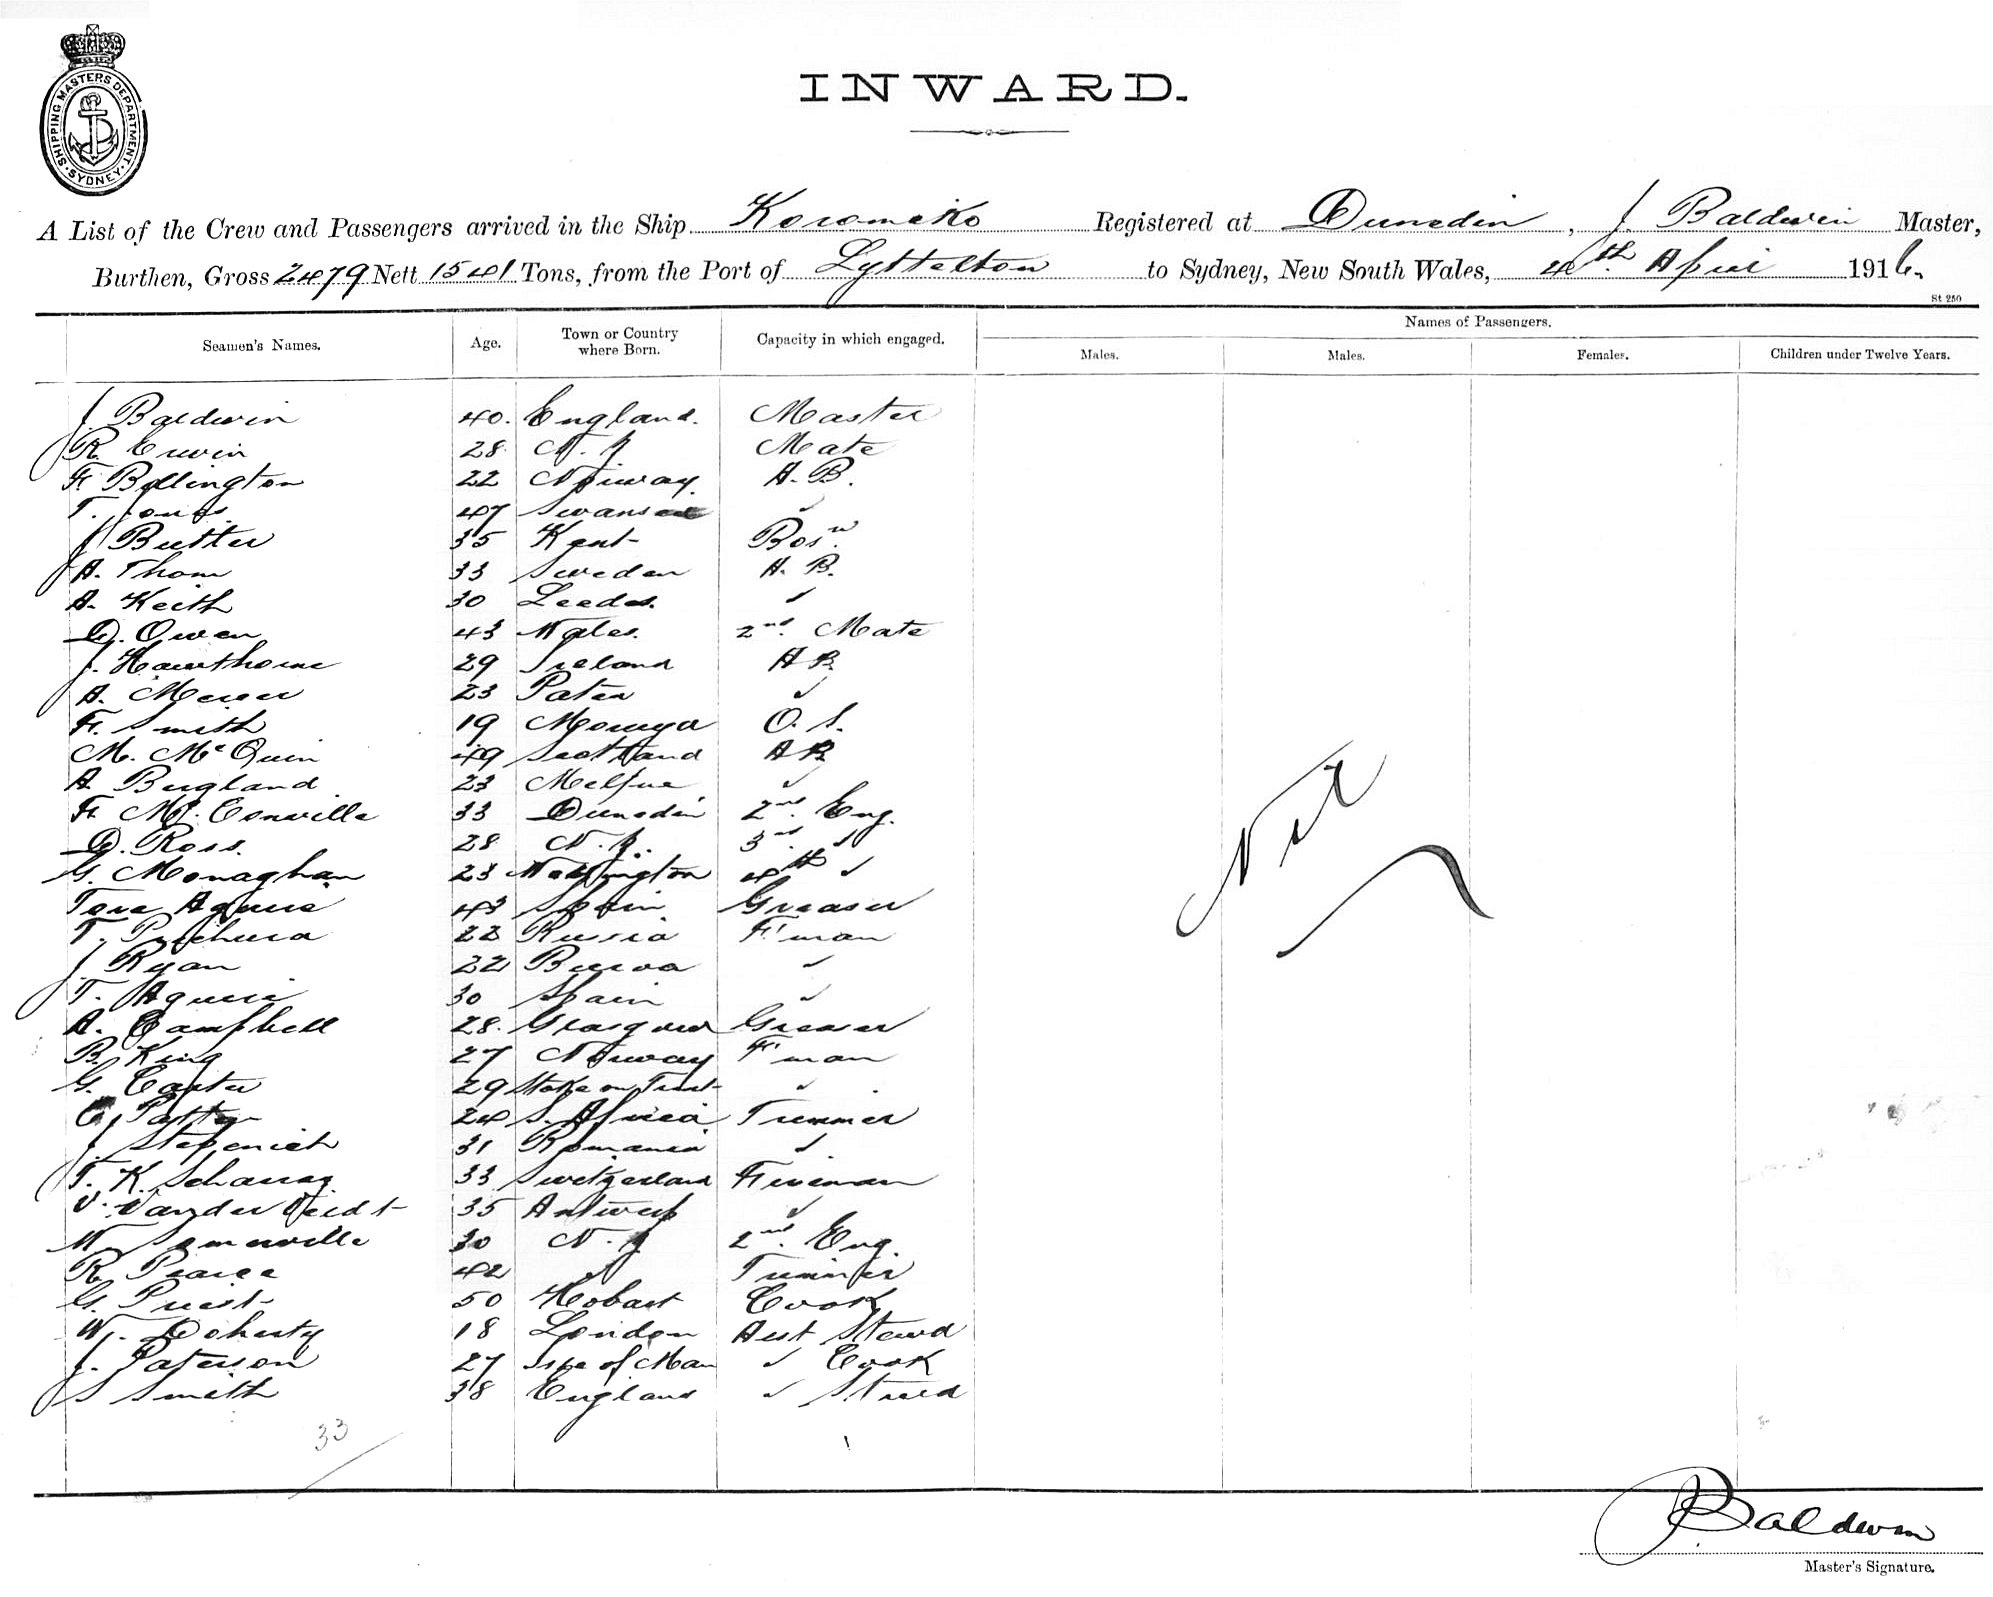 SHIPPING MASTERS DEPARTMENT. SYDNEY.
INWARD.
A List of the Crew and Passengers arrived in the Ship Koromiko Registered at Dunedin, J. Baldwin Master,
Burthen, Gross 2479 Nett 1541 Tons, from the Port of Lyttelton to Sydney, New South Wales, 4th April 1916.
St 250
Seamen's Names. Age. Town or Country where Born. Capacity in which engaged. Names of Passengers.
Males. Males. Females. Children under Twelve Years.
J. Baldwin 40. England. Master
R. Erwin 28 N. Z Mate
F. Bollington 22 Norway. A. B.
T. Jones 47 Swansea ✓
J Butter 35 Kent Bosn.
A. Thom 33 Sweden A. B.
A. Keith 30 Leeds. ✓
D. Owen 43 Wales. 2nd. Mate
J. Hawthorne 29 Ireland A B.
A. Mercer 23 Patea ✓
F. Smith 19 Moruya O. S.
M. McQuin 49 Scotland A B
A 23 ✓
F. Mc. Conville 33 Dunedin 2nd. Eng.
D. Ross. 28 N. Z. 3rd. ✓
G. Monaghan 23 Wellington 4th ✓
43 Spain Greaser
T. 22 Russia F'man
J. Ryan 22 ✓
T. 30 Spain ✓
A. Campbell 28. Glasgow Greaser
B. King 27 Norway F'man
G. Carter 29 Stoke on Trent ✓
C. 24 S. Africa Trimmer
J. 31 Romania ✓
T. K. 33 Switzerland Fireman
V. Vander Veidt 35 Antwerp ✓
W Somerville 30 N. Z 2nd. Eng.
R. Pearce 42 ✓ Trimmer
G. Priest 50 Hobart Cook
W. Doherty 18 London Asst Stewd
J. Paterson 27 Isle of Man ✓ Cook
S Smith 38 England ✓ Stewd
Nil
33
J Baldwin
Master's Signature.